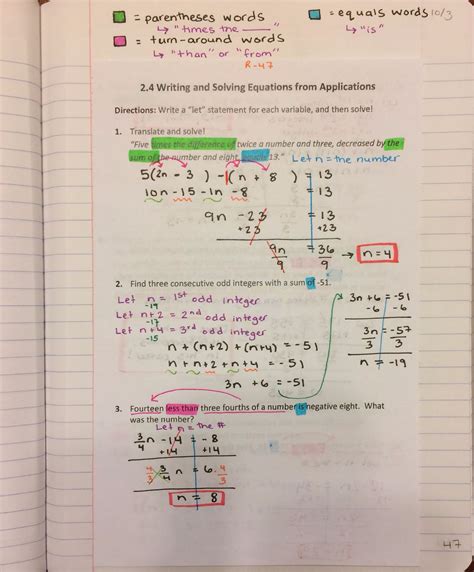 = parentheses words
↳ "times the ____"
= equals words 10/3
↳ "is"
= turn-around words
↳ "than" or "from"
R-47
2.4 Writing and Solving Equations from Applications
Directions: Write a "let" statement for each variable, and then solve!
1. Translate and solve!
"Five times the difference of twice a number and three, decreased by the
sum of the number and eight, equals 13." Let n = the number
5(2n - 3) - 1(n + 8) = 13
10n - 15 - 1n - 8 = 13
9n - 23 = 13
+23 +23
9n = 36 → n = 4
9 9
2. Find three consecutive odd integers with a sum of -51.
Let n = 1st odd integer
-19
Let n+2 = 2nd odd integer
-17
Let n+4 = 3rd odd integer
-15
n + (n+2) + (n+4) = -51
n + n+2 + n+4 = -51
3n + 6 = -51
3n + 6 = -51
-6 -6
3n = -57
3 3
n = -19
3. Fourteen less than three fourths of a number is negative eight. What
was the number?
Let n = the #
3/4 n - 14 = -8
+14 +14
4/3 · 3/4 n = 6 · 4/3
n = 8
47